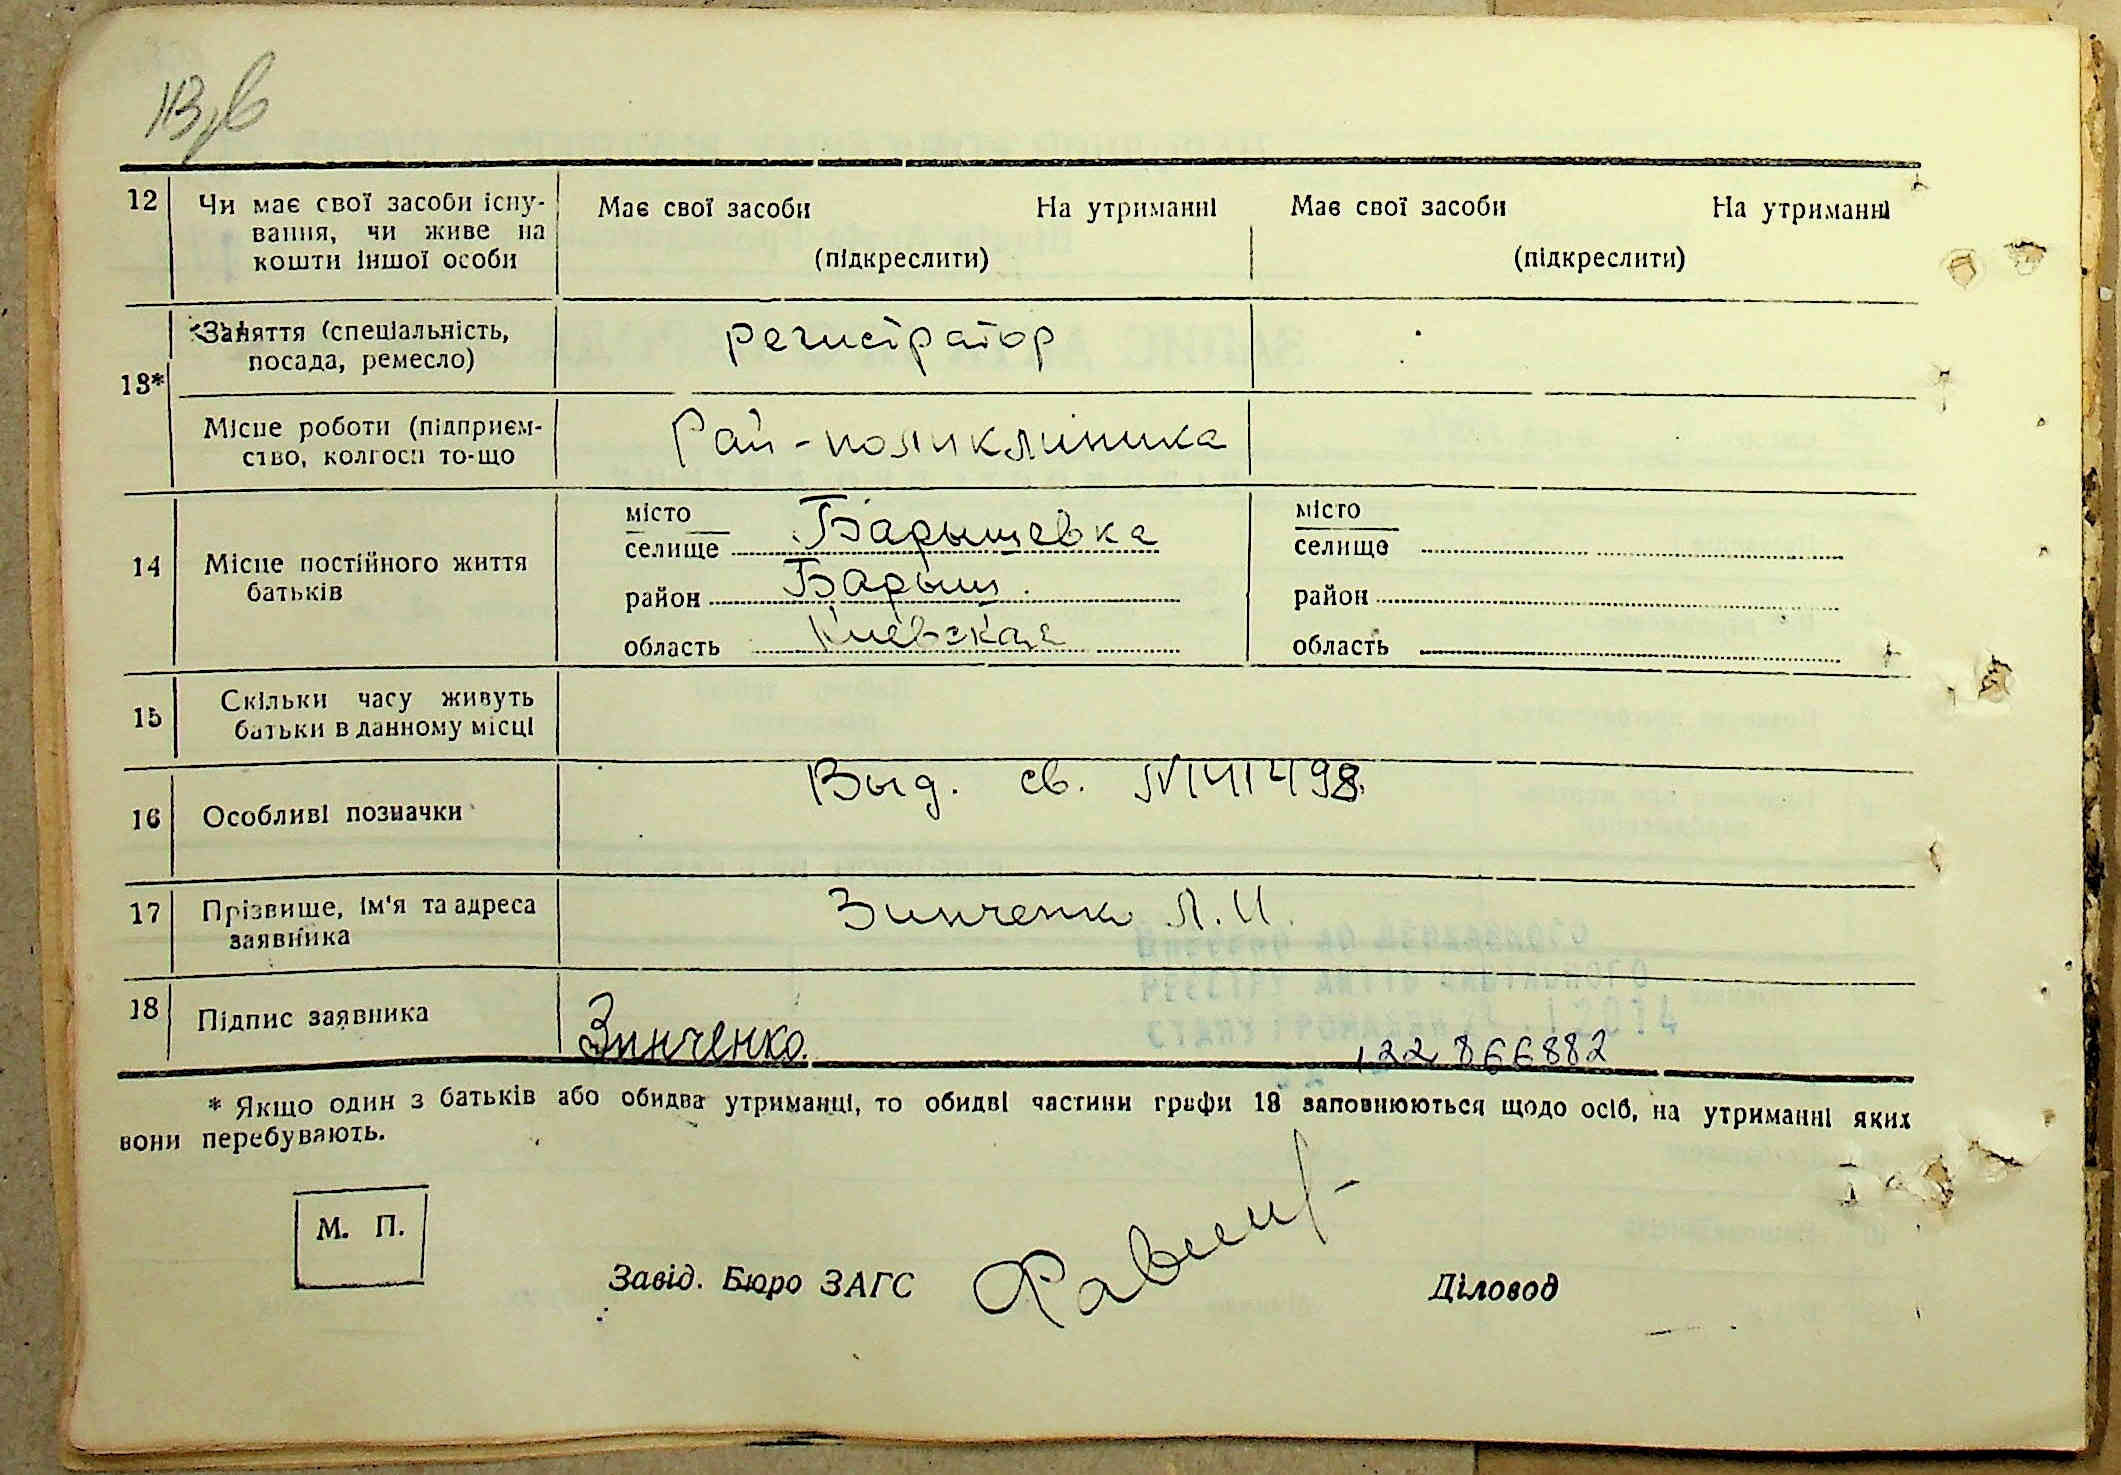 12 Чи має свої засоби існу-
вання, чи живе на
кошти іншої особи
Має свої засоби На утриманні
(підкреслити)
Має свої засоби На утриманні
(підкреслити)
13*
Заняття (спеціальність,
посада, ремесло)
регистратор
Місце роботи (підприєм-
ство, колгосп то-що
Рай-поликлиника
14 Місце постійного життя
батьків
місто
селище Барышевка
район Барыш.
область Киевская
місто
селище
район
область
15 Скільки часу живуть
батьки в данному місці
16 Особливі позначки
Выд. св. №141498.
17 Прізвище, ім'я та адреса
заявника
Зинченко Л.И.
18 Підпис заявника
Зинченко.
122866882
* Якщо один з батьків або обидва утриманці, то обидві частини графи 18 заповнюються щодо осіб, на утриманні яких
вони перебувають.
М. П.
Завід. Бюро ЗАГС
Діловод